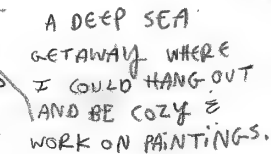 A DEEP SEA
GETAWAY WHERE
I COULD HANG OUT
AND BE COZY &
WORK ON PAINTINGS.